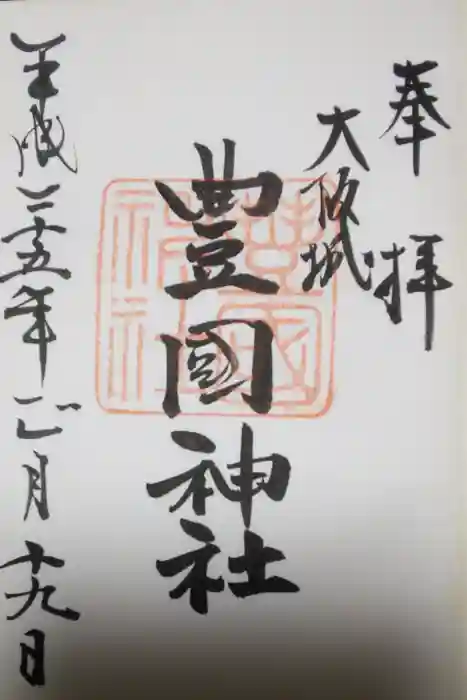 奉拝
大阪城
豊國神社
平成二十五年二月十九日